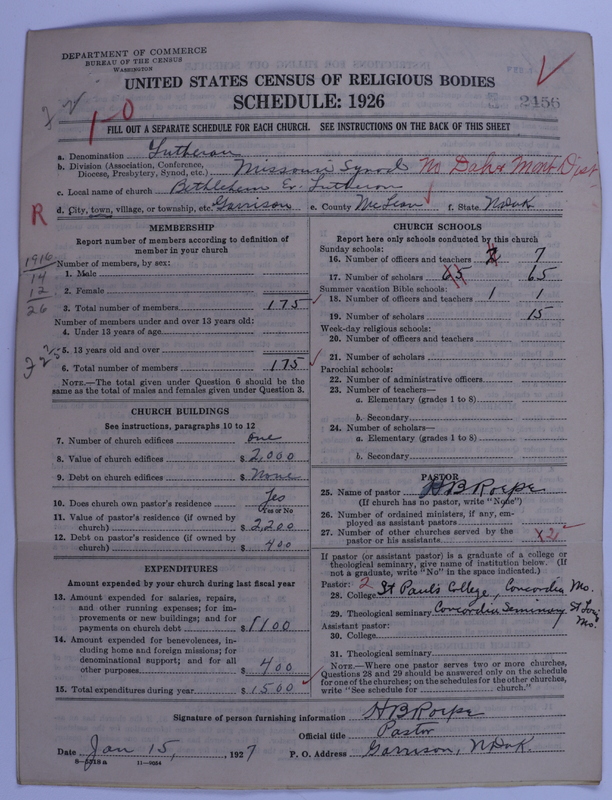 DEPARTMENT OF COMMERCE
BUREAU OF THE CENSUS
WASHINGTON
UNITED STATES CENSUS OF RELIGIOUS BODIES
SCHEDULE: 1926
2456
1-0
FILL OUT A SEPARATE SCHEDULE FOR EACH CHURCH. SEE INSTRUCTIONS ON THE BACK OF THIS SHEET
a. Denomination Lutheran
b. Division (Association, Conference, Diocese, Presbytery, Synod, etc.) Missouri Synod No Dak & Mont Dist
c. Local name of church Bethlehem Ev. Lutheran
R
d. City, town, village, or township, etc. Garrison e. County McLean f. State N. Dak
MEMBERSHIP
Report number of members according to definition of member in your church
Number of members, by sex:
1916
14
12
26
1. Male
2. Female
3. Total number of members 175
Number of members under and over 13 years old:
4. Under 13 years of age
5. 13 years old and over
6. Total number of members 175
NOTE.—The total given under Question 6 should be the same as the total of males and females given under Question 3.
CHURCH BUILDINGS
See instructions, paragraphs 10 to 12
7. Number of church edifices one
8. Value of church edifices $ 2,000
9. Debt on church edifices $ None
10. Does church own pastor's residence Yes
Yes or No
11. Value of pastor's residence (if owned by church) $ 2,200
12. Debt on pastor's residence (if owned by church) $ 400
EXPENDITURES
Amount expended by your church during last fiscal year
13. Amount expended for salaries, repairs, and other running expenses; for improvements or new buildings; and for payments on church debt $ 1100
14. Amount expended for benevolences, including home and foreign missions; for denominational support; and for all other purposes $ 400
15. Total expenditures during year $ 1500
CHURCH SCHOOLS
Report here only schools conducted by this church
Sunday schools:
16. Number of officers and teachers 7
17. Number of scholars 65 65
Summer vacation Bible schools:
18. Number of officers and teachers 1 1
19. Number of scholars 15
Week-day religious schools:
20. Number of officers and teachers
21. Number of scholars
Parochial schools:
22. Number of administrative officers
23. Number of teachers—
a. Elementary (grades 1 to 8)
b. Secondary
24. Number of scholars—
a. Elementary (grades 1 to 8)
b. Secondary
PASTOR
25. Name of pastor H B Roepe
(If church has no pastor, write "None")
26. Number of ordained ministers, if any, employed as assistant pastors
27. Number of other churches served by the pastor or his assistants
If pastor (or assistant pastor) is a graduate of a college or theological seminary, give name of institution below. (If not a graduate, write "No" in the space indicated.)
Pastor: 2
28. College St Paul's College, Concordia Mo.
29. Theological seminary Concordia Seminary St Louis Mo.
Assistant pastor:
30. College
31. Theological seminary
NOTE.—Where one pastor serves two or more churches, Questions 28 and 29 should be answered only on the schedule for one of the churches; on the schedules for the other churches, write "See schedule for church."
Signature of person furnishing information H B Roepe
Official title Pastor
Date Jan 15, 1927 P. O. Address Garrison, N Dak.
8-5718a 11-9054